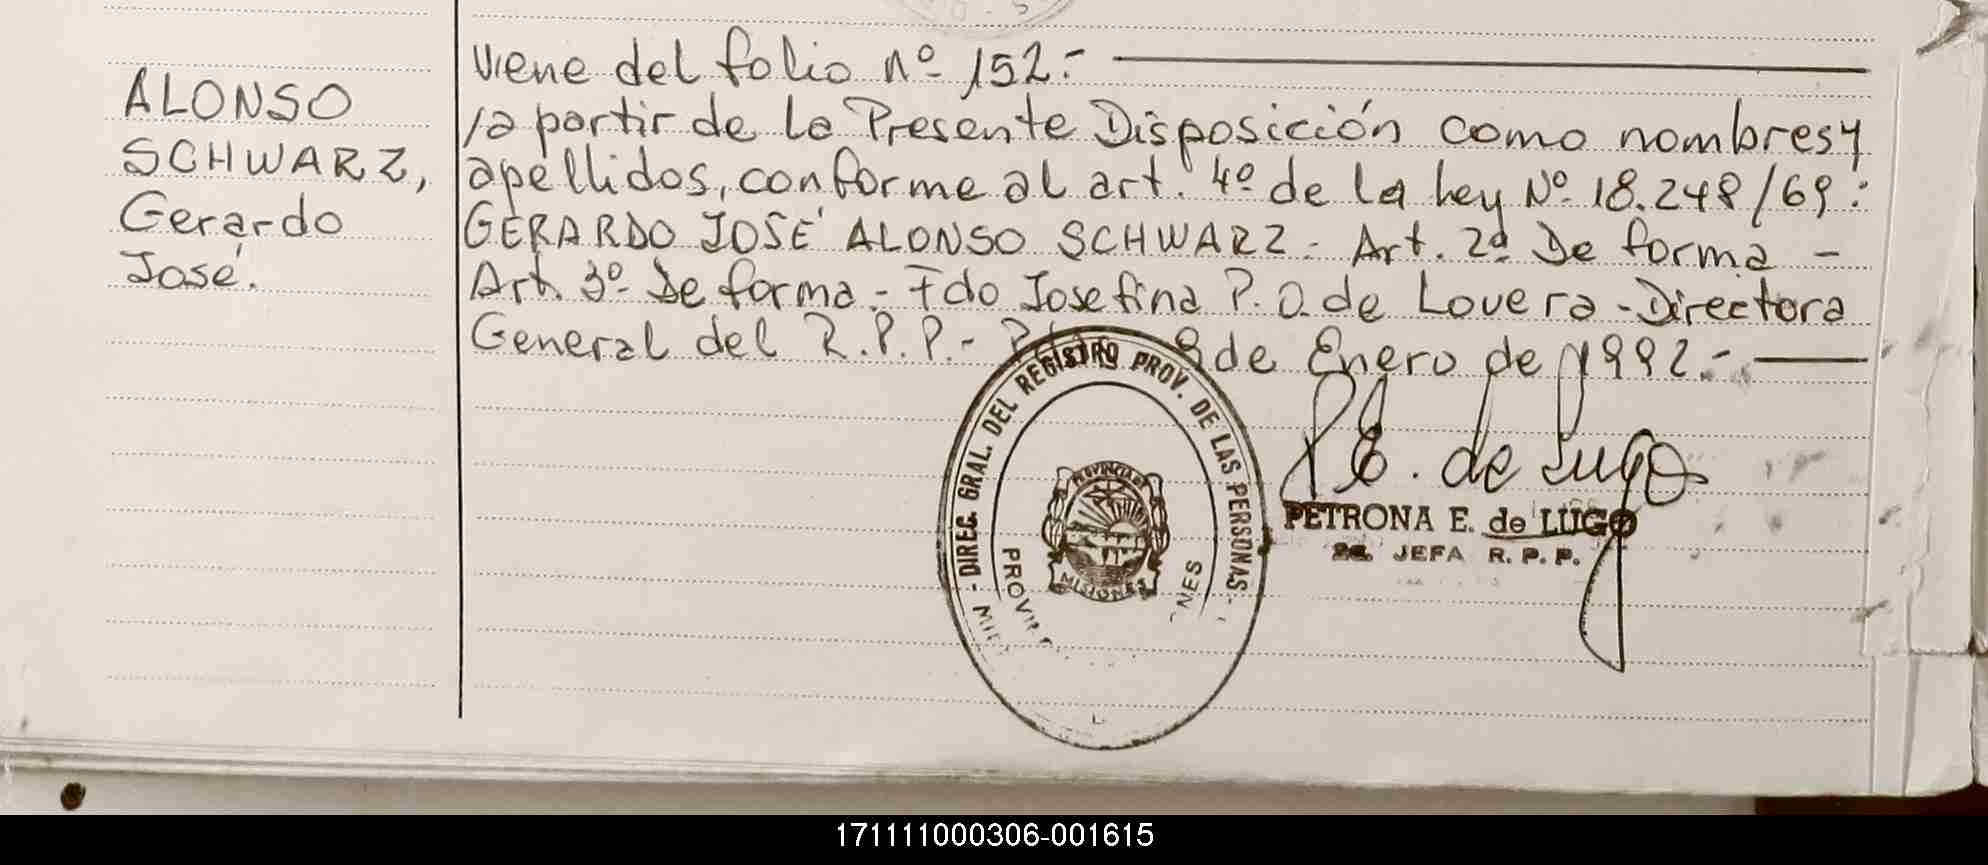 ALONSO
SCHWARZ,
Gerardo
José.
Viene del folio nº 152.-
/a partir de la Presente Disposición como nombres y
apellidos, conforme al art. 4º de la Ley Nº 18.248/69:
GERARDO JOSÉ ALONSO SCHWARZ - Art. 2º De forma -
Art. 3º De forma - Fdo Josefina P. O. de Lovera - Directora
General del R.P.P.- 8 de Enero de 1992.-
- DIREC. GRAL. DEL REGISTRO PROV. DE LAS PERSONAS -
PROVINCIA DE
MISIONES
P. E. de Lugo
PETRONA E. de LUGO
JEFA R. P. P.
171111000306-001615